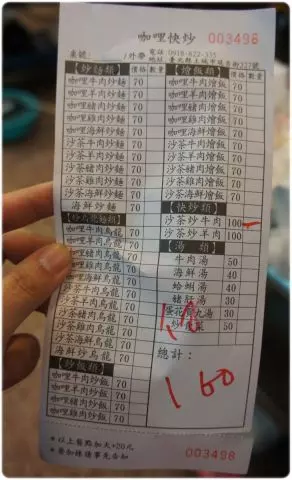 咖哩快炒 003498
桌號: /外帶 電話 0918-622-335
地址 臺北縣土城市延吉街227號
【炒麵類】 價格 數量
咖哩牛肉炒麵 70
咖哩羊肉炒麵 70
咖哩豬肉炒麵 70
咖哩雞肉炒麵 70
咖哩海鮮炒麵 70
沙茶牛肉炒麵 70
沙茶羊肉炒麵 70
沙茶豬肉炒麵 70
沙茶雞肉炒麵 70
沙茶海鮮炒麵 70
海鮮炒麵 70
【炒烏龍麵類】
咖哩牛肉烏龍 70
咖哩羊肉烏龍 70
咖哩豬肉烏龍 70
咖哩雞肉烏龍 70
咖哩海鮮烏龍 70
沙茶牛肉烏龍 70
沙茶羊肉烏龍 70
沙茶豬肉烏龍 70
沙茶雞肉烏龍 70
沙茶海鮮烏龍 70
海鮮炒烏龍 70
【炒飯類】
咖哩牛肉炒飯 70
咖哩羊肉炒飯 70
咖哩豬肉炒飯 70
【燴飯類】 價格 數量
咖哩牛肉燴飯 70
咖哩羊肉燴飯 70
咖哩豬肉燴飯 70
咖哩雞肉燴飯 70
咖哩海鮮燴飯 70
沙茶牛肉燴飯 70
沙茶羊肉燴飯 70
沙茶豬肉燴飯 70
沙茶雞肉燴飯 70
沙茶海鮮燴飯 70
【快炒類】
沙茶炒牛肉 100
沙茶炒羊肉 100
【湯類】
牛肉湯 50
海鮮湯 40
蛤蜊湯 40
豬肝湯 30
蛋花湯 30
30
50
總計:
160
*以上餐點加大+20元
*要加辣請事先告知
003498